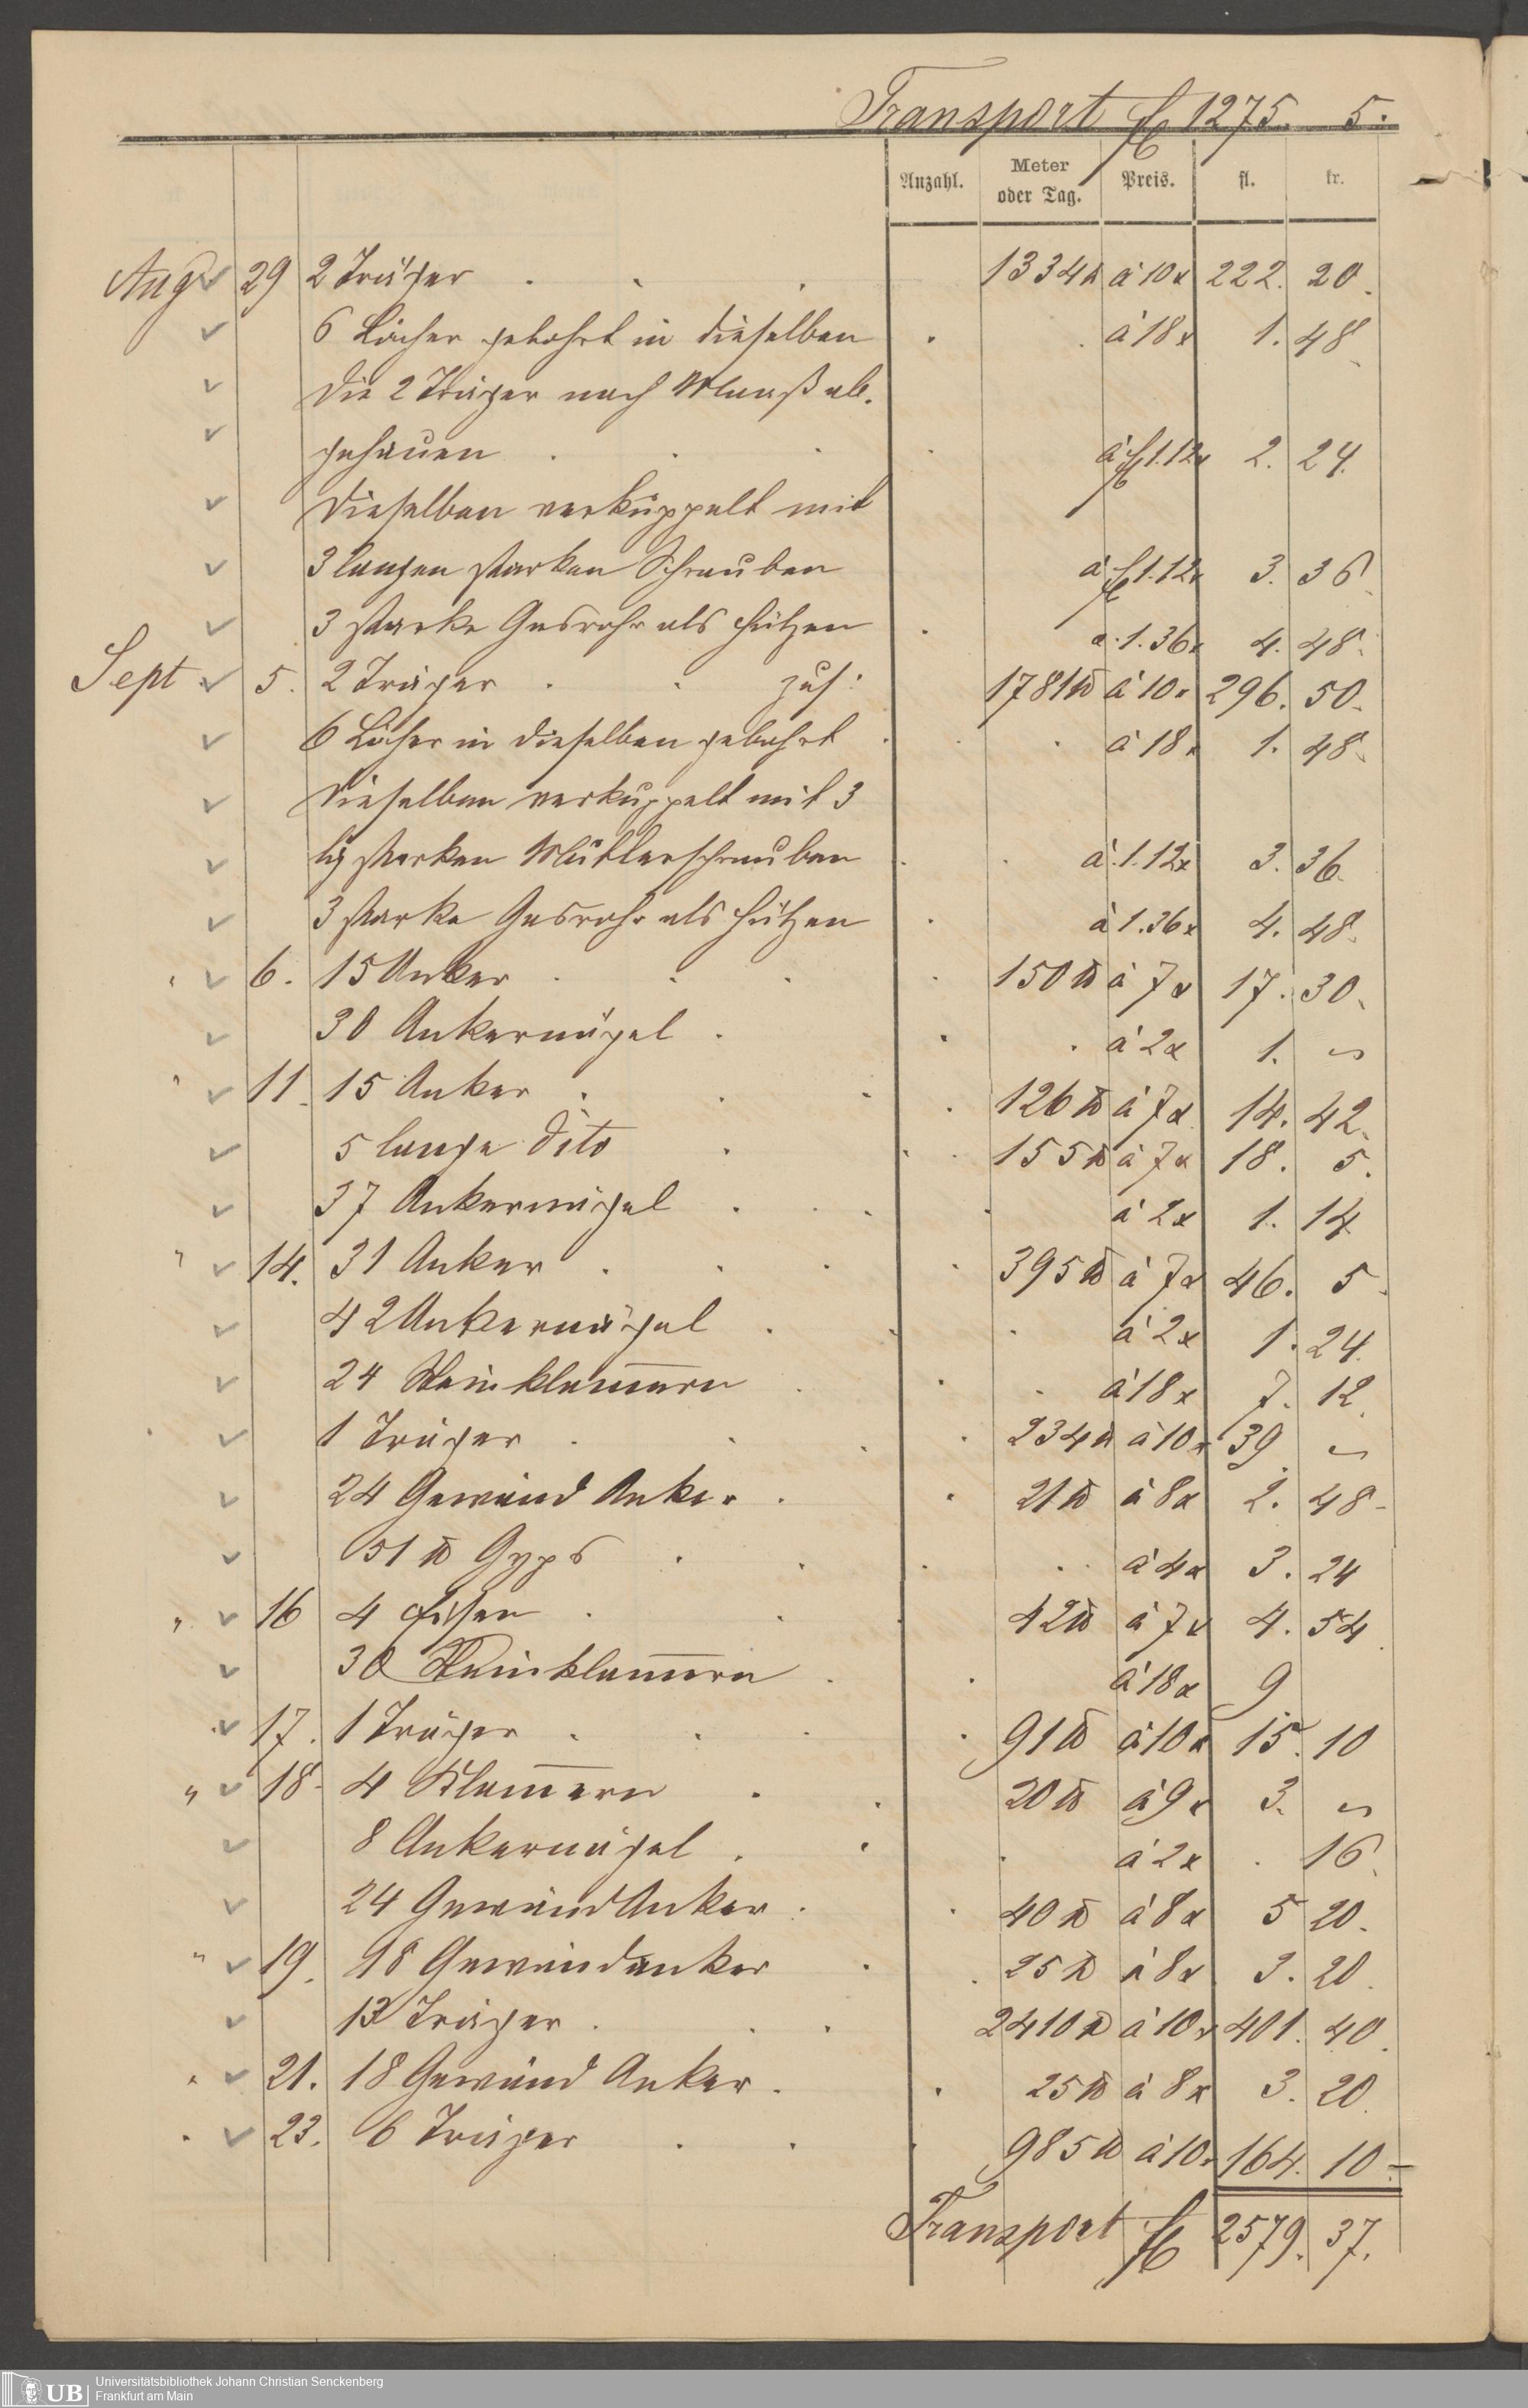 Transport fl 1275. 5.
Anzahl. Meter oder Tag. Preis. fl. kr.
Aug 29 2 Träger . . . 1334 ℔ à 10 x 222. 20.
6 Löcher gebohrt in dieselben . . à 18 x 1. 48
Die 2 Träger nach Maaß ab-
gehauen . . . . à fl 1.12x 2. 24.
Dieselben verkuppelt mit
3 langen starken Schrauben à fl 1.12x 3. 36
3 starke Gasrohr als Hülsen . à 1.36x 4. 48.
Sept. 5. 2 Träger . . zus: 1781 ℔ à 10 x 296. 50.
6 Löcher in dieselben gebohrt . . . à 18 x 1. 48.
Dieselben verkuppelt mit 3
lg starken Mutterschrauben . . à 1.12x 3. 36.
3 starke Gasrohr als Hülsen . à 1.36x 4. 48.
" 6. 15 Anker . . . . 150 ℔ à 7 x 17. 30.
30 Ankernägel . . . à 2 x 1. –
" 11. 15 Anker . . . . 126 ℔ à 7 x 14. 42.
5 lange dito . . . 155 ℔ à 7 x 18. 5.
37 Ankernägel . . . . à 2 x 1. 14
" 14. 31 Anker . . . . 395 ℔ à 7 x 46. 5.
42 Ankernägel . . . à 2 x 1. 24.
24 Steinklam̄ern . . . à 18 x 7. 12.
1 Träger . . . . 234 ℔ à 10 x 39. –
24 Gewänd Anker . . 21 ℔ à 8 x 2. 48.
51 ℔ Gyps . . . . . à 4 x 3. 24
" 16 4 Eisen . . . 42 ℔ à 7 x 4. 54.
30 Steinklam̄ern . . à 18 x 9
" 17. 1 Träger . . . . 91 ℔ à 10 x 15. 10
" 18. 4 Klam̄ern . . 20 ℔ à 9 x 3. –
8 Ankernägel . . . à 2 x . 16.
24 Gewänd Anker . . 40 ℔ à 8 x 5 20.
" 19. 18 Gewändanker . . 25 ℔ à 8 x 3. 20.
13 Träger . . . 2410 ℔ à 10 x 401. 40.
" 21. 18 Gewänd Anker . . 25 ℔ à 8 x 3. 20.
" 23. 6 Träger . . . 985 ℔ à 10 x 164. 10.
Transport fl 2579. 37.
UB Universitätsbibliothek Johann Christian Senckenberg
Frankfurt am Main